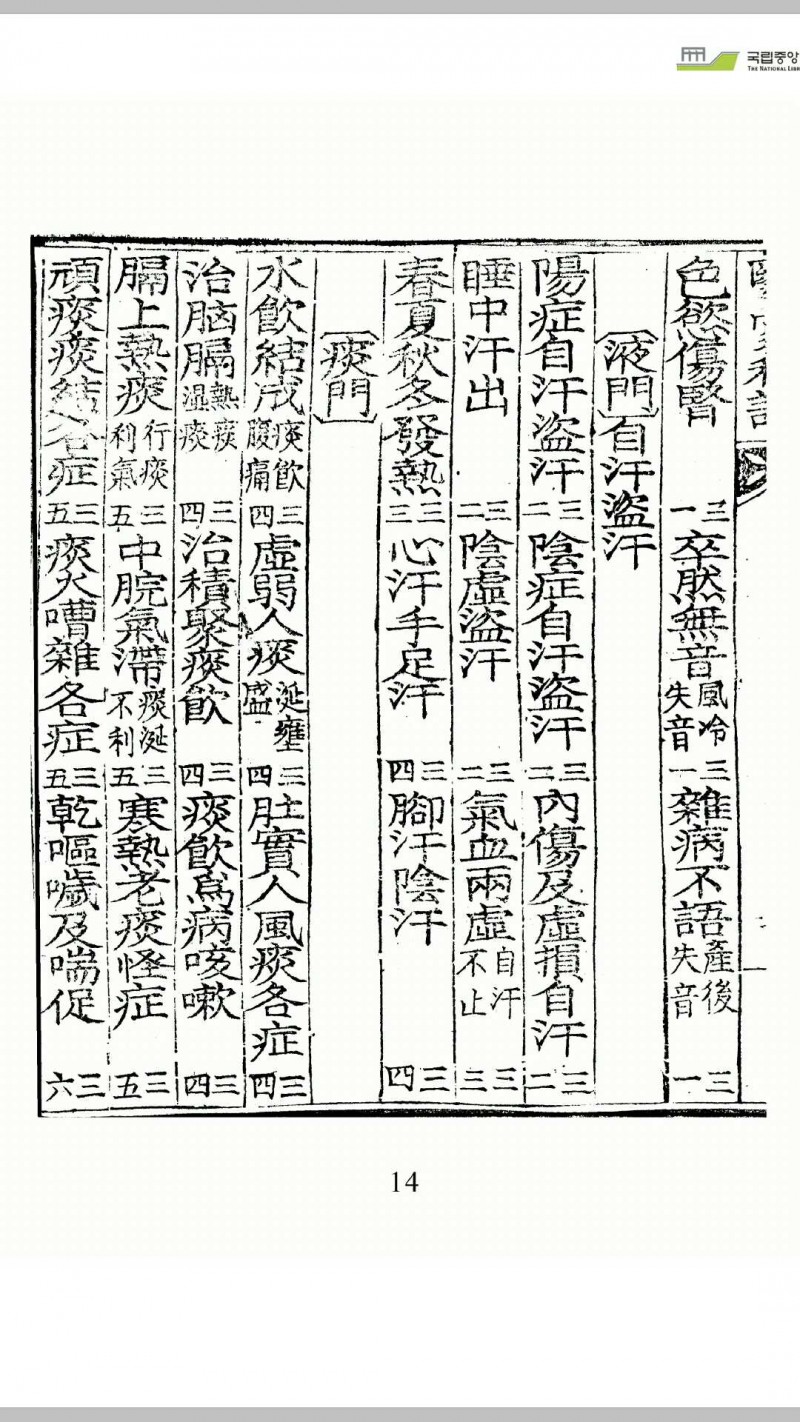 국립중앙
THE NATIONAL LIBR
色慾傷腎 三一 卒然無音 風冷失音 三一 雜病不語 產後失音 三一
〔液門〕自汗盜汗
陽症自汗盜汗 三二 陰症自汗盜汗 三二 內傷及虛損自汗 三二
睡中汗出 三二 陰虛盜汗 三二 氣血兩虛 自汗不止 三三
春夏秋冬發熱 三三 心汗手足汗 三四 腳汗陰汗 三四
〔痰門〕
水飲結成 痰飲腹痛 三四 虛弱人痰 涎壅盛 三四 肚實人風痰各症 三四
治脳膈 熱痰湿痰 三四 治積聚痰飲 三四 痰飲爲病咳嗽 三四
膈上熱痰 行痰利氣 三五 中脘氣滯 痰涎不利 三五 寒熱老痰怪症 三五
頑痰痰結各症 三五 痰火嘈雜各症 三五 乾嘔噦及喘促 三六
14